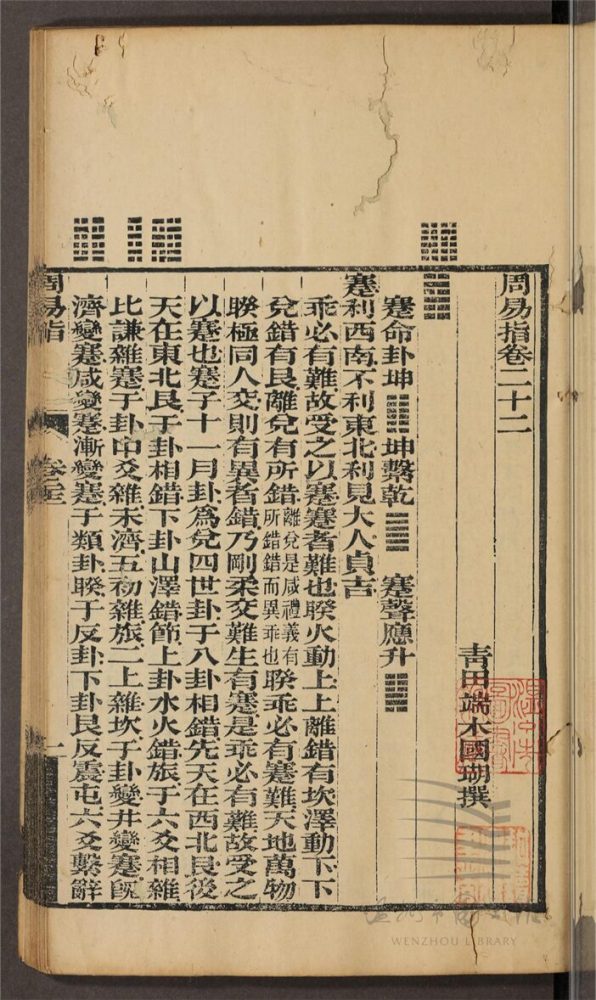 周易指卷二十二
青田端木國瑚撰
蹇命卦坤 坤繫乾 蹇聲應升
蹇利西南不利東北利見大人貞吉
乖必有難故受之以蹇蹇者難也睽火動上上離錯有坎澤動下下
兌錯有艮離兌有所錯離兌是咸禮義有所錯錯而異乖也睽乖必有蹇難天地萬物
睽極同人交則有異者錯乃剛柔交難生有蹇是乖必有難故受之
以蹇也蹇子十一月卦爲兌四世卦于八卦相錯先天在西北艮後
天在東北艮于卦相錯下卦山澤錯節上卦水火錯旅于六爻相雜
比謙雜蹇于卦中爻雜未濟五初雜旅二上雜坎于卦變井變蹇旣
濟變蹇咸變蹇漸變蹇于類卦睽于反卦下卦艮反震屯六爻繫辭
周易指 卷二十二 一
WENZHOU LIBRARY